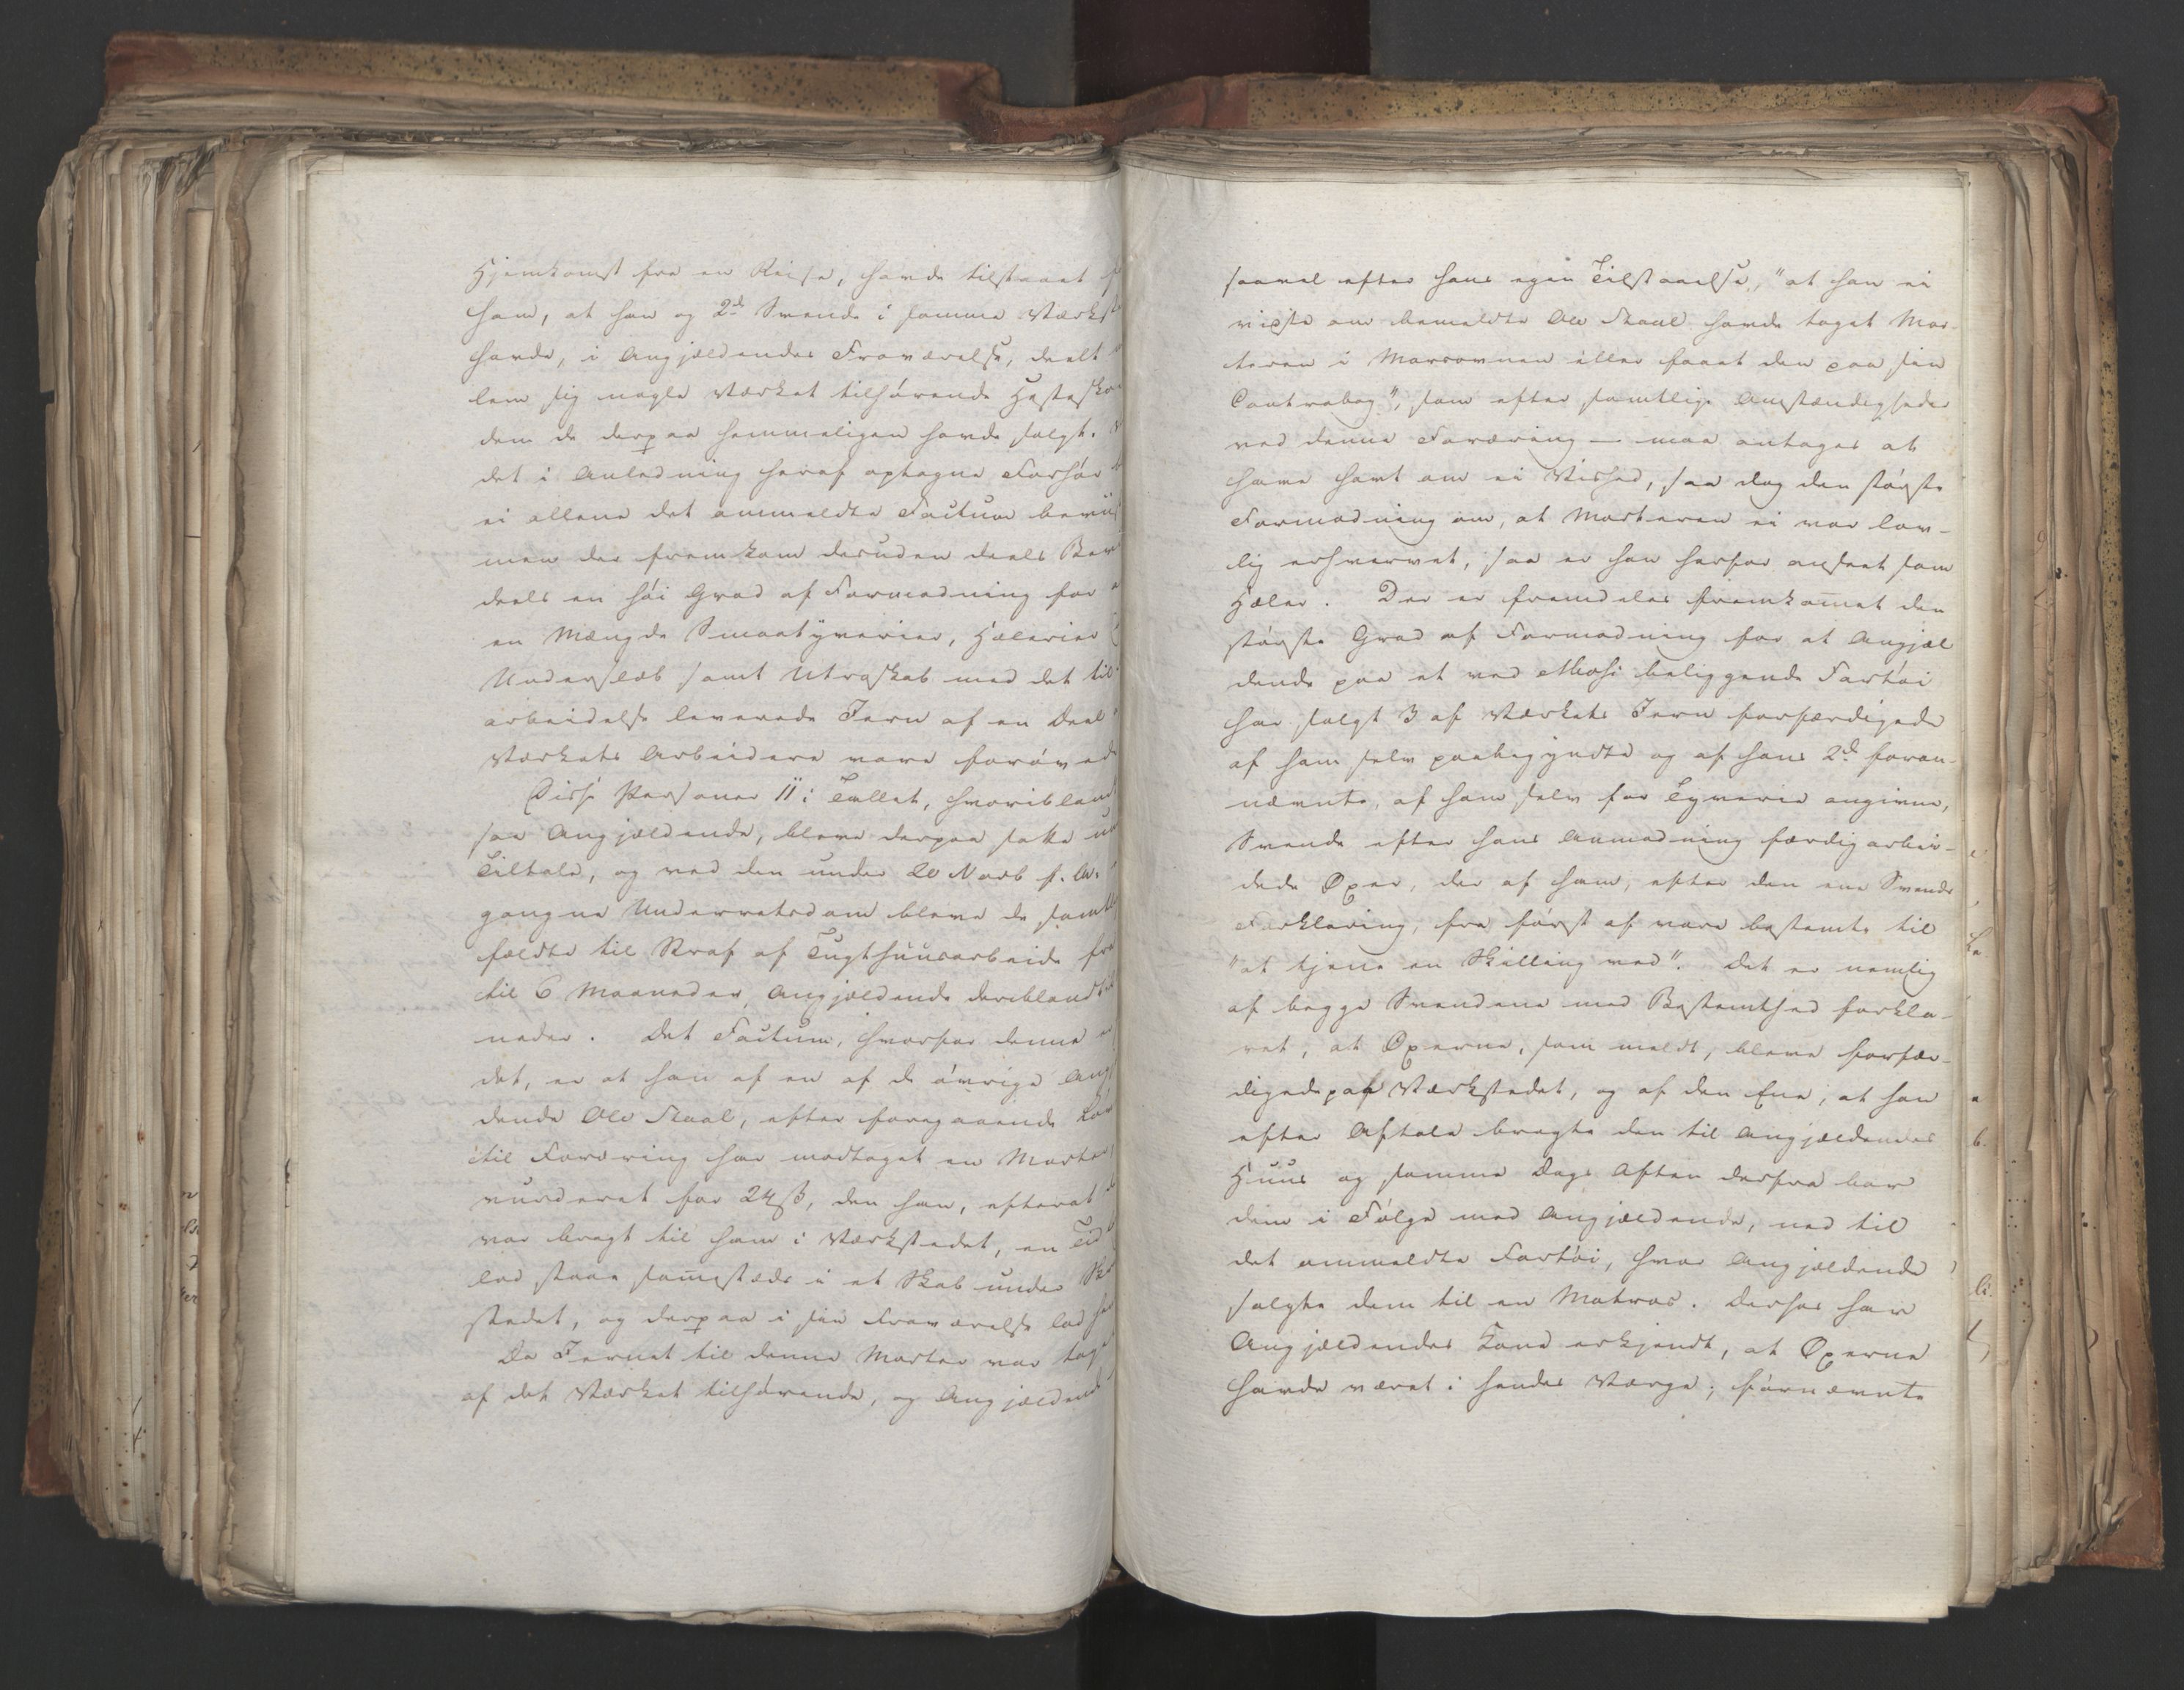 Hjemkomst fra en Reise, havde tilstaaet f
ham, at han og 2de Svende i samme Værkst
havde, i Angjældendes Fraværelse, deelt
lem sig nogle Værket tilhørende Hestesko
dem de derpaa hemmeligen havde solgt.
det i Anledning heraf optagne Forhør
ei allene det ommeldte Factum beviis
men der fremkom desuden deels Bev
deels en høi Grad af Formodning for
en Mængde Smaatyverier, Hælerier
Underslæb samt Utroskab med det til
arbeidelse leverede Jern af en Deel
Værkets Arbeidere vare forøvede
Disse Personer 11 i Tallet, hvoriblandt
saa Angjældende, bleve derpaa satte un
Tiltale, og ved den under 20 Novb f. A.
gangne Underretsdom bleve de samtl
fældte til Straf af Tugthuusarbeide fra
til 6 Maaneder, Angjældende deriblandt til
neder. Det Factum, hvorfor denne er
det, er at han af en af de øvrige Angj
dende Ole Skaal, efter foregaaende Løv
til Foræring har modtaget en Morter,
vurderet for 24 ß, den han, efterat
var bragt til ham i Værkstedet, en Tid
lod staae sammesteds i et Skab under
stedet, og derpaa i sin Fraværelse lod he
Da Jernet til denne Morter var tag
af det Værket tilhørende, og Angjældende
saavel efter hans egen Tilstaaelse, "at han ei
vidste om bemeldte Ole Skaal havde taget Mor-
teren i Masovnen eller faaet den paa sin
Contrabog", som efter samtlige Omstændigheder
ved denne Foræring - maa antages at
have havt om ei Vished, saa dog den største
Formodning om, at Morteren ei var lov-
lig erhvervet, saa er han herfor anseet som
Hæler. Der er fremdeles fremkommet den
største Grad af Formodning for at Angjæl
dende paa et ved Moss beliggende Fartøi
har solgt 3 af Værkets Jern forfærdigede
af ham selv paabegyndte og af hans 2de foran-
nævnte, af ham selv for Tyverie angivne,
Svende efter hans Anmodning færdigarbei-
dede Øxer, der af ham, efter den ene Svends
Forklaring, fra først af vare bestemte til
"at tjene en Skilling ved". Det er nemlig
af begge Svendene med Bestemthed forkla-
ret, at Øxerne, som meldt, bleve forfær-
digede paa Værkstedet, og af den Ene, at han
efter Aftale bragte den til Angjældendes
Huus og samme Dags Aften derfra bar
dem i Følge med Angjældende, ned til
det ommeldte Fartøi, hvor Angjældende
solgte dem til en Matros. Derhos har
Angjældendes Kone erkjendt, at Øxerne
havde været i hendes Værge; førnævnte